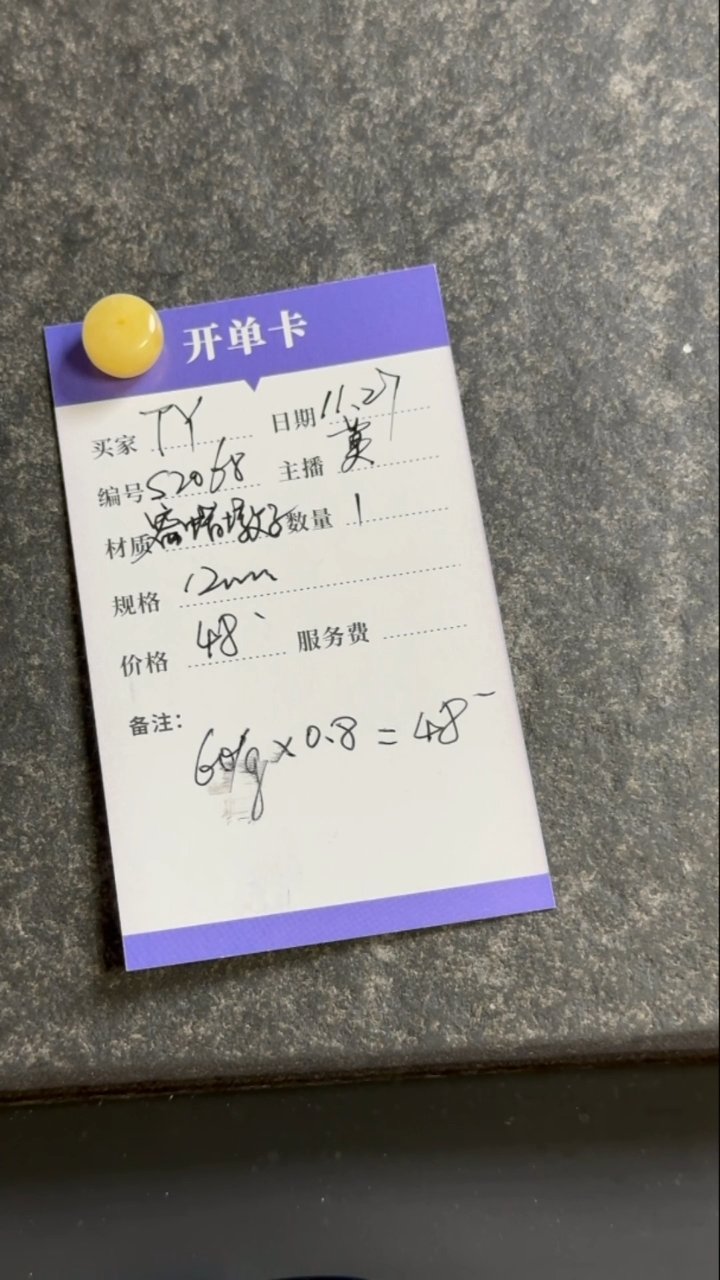 开单卡
买家 TY 日期 11.27
编号 S2068 主播 黄
材质 蜜蜡 数量 1
规格 12mm
价格 48 服务费
备注：
60/g×0.8=48-